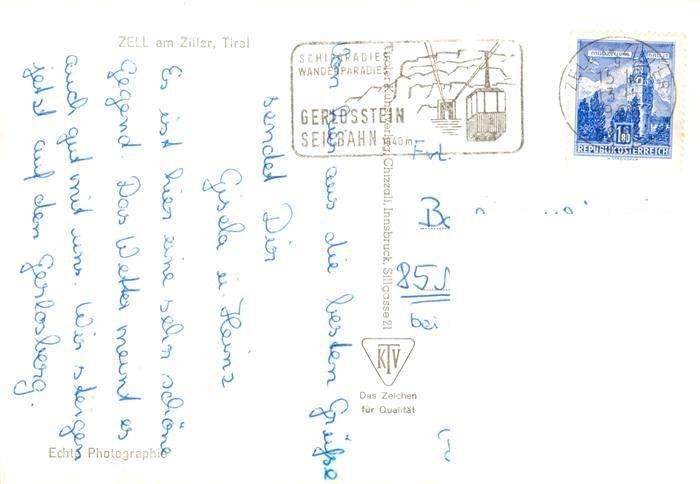 ZELL am Ziller, Tirol
SCHIPARADIES
WANDERPARADIES
GERLOSSTEIN
SEILBAHN 1640m
1.80
REPUBLIK ÖSTERREICH
Von hier aus die besten Grüße
sendet Dir
Gisela u. Heinz
Es ist hier eine sehr schöne
Gegend Das Wetter meint es
auch gut mit uns. Wir steigen
jetzt auf den Gerlosberg.
Frl.
851
bei
Chizzali, Innsbruck, Sillgasse 21
KTV
Das Zeichen
für Qualität
Echte Photographie